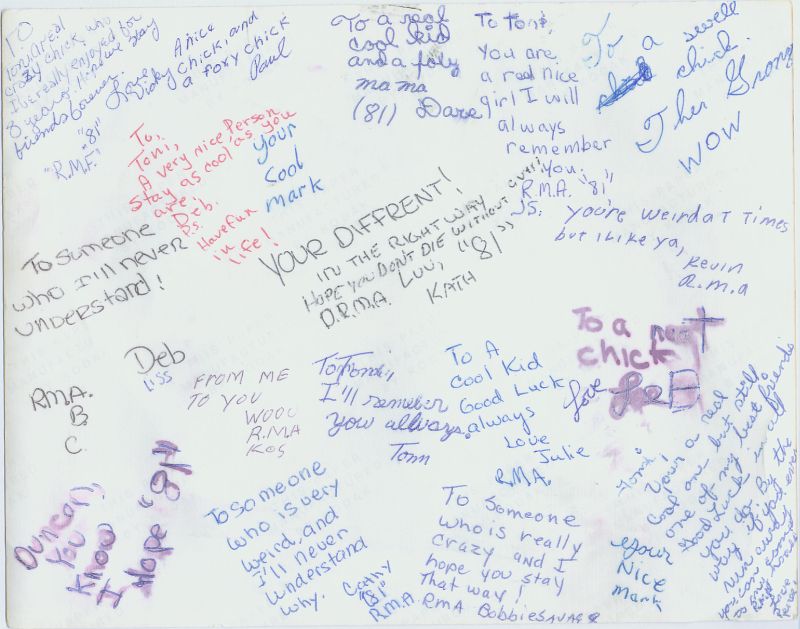 TO
Toni, a real
crazy chick, who
I've really enjoyed for
8 years. Hope we stay
friends forever.
Love, Anice
Vicky chick, and
a foxy chick
Paul
"R.M.F." "81"
To a real
cool kid
and a foly
mama
(81) Dare
To Toni,
You are
a real nice
girl I will
always
remember
you!
R.M.A. "81"
To a swell
chick.
Ther Grong
WOW
To,
Toni,
A very nice Person
Stay as cool as you
are.
Deb.
P.S.
Have fun
in life!
Your
cool
mark
YOUR DIFFRENT!
IN THE RIGHT WAY
HOPE YOU DON'T DIE WITHOUT
D.R.M.A. LUV, "81"
KATH
J.S. you're weird at times
but i like ya,
Kevin
R.m.a
To someone
who I'll never
understand!
Deb
Liss
RMA.
B.
C.
FROM ME
TO YOU
WOOU
R.MA
KOS
To Tomi,
I'll remeber
you allways.
Tomm
To A
cool Kid
Good Luck
always
Love
Julie
R.M.A.
To a neat
chick
love Lee
Duncan,
You
Know
I Hope "81"
To someone
who is very
weird, and
I'll never
understand
why.
Cathy
"81"
R.M.A
To Someone
who is really
crazy and I
hope you stay
that way!
R.M.A Bobbie SAVAGE
Your
Nice
mark
Tomi,
Your a real
cool one but still
one of my best friends
Good Luck in all
you do. By the
way if you ever
run away
you can come
to my house